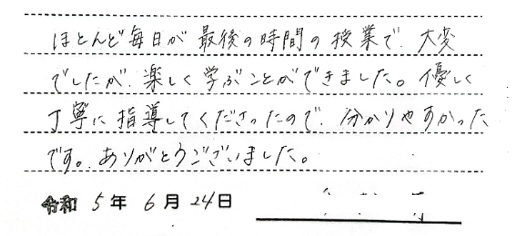 ほとんど毎日が最後の時間の授業で、大変
でしたが、楽しく学ぶことができました。優しく
丁寧に指導してくださったので、分かりやすかった
です。ありがとうございました。
令和 5年 6月 24日